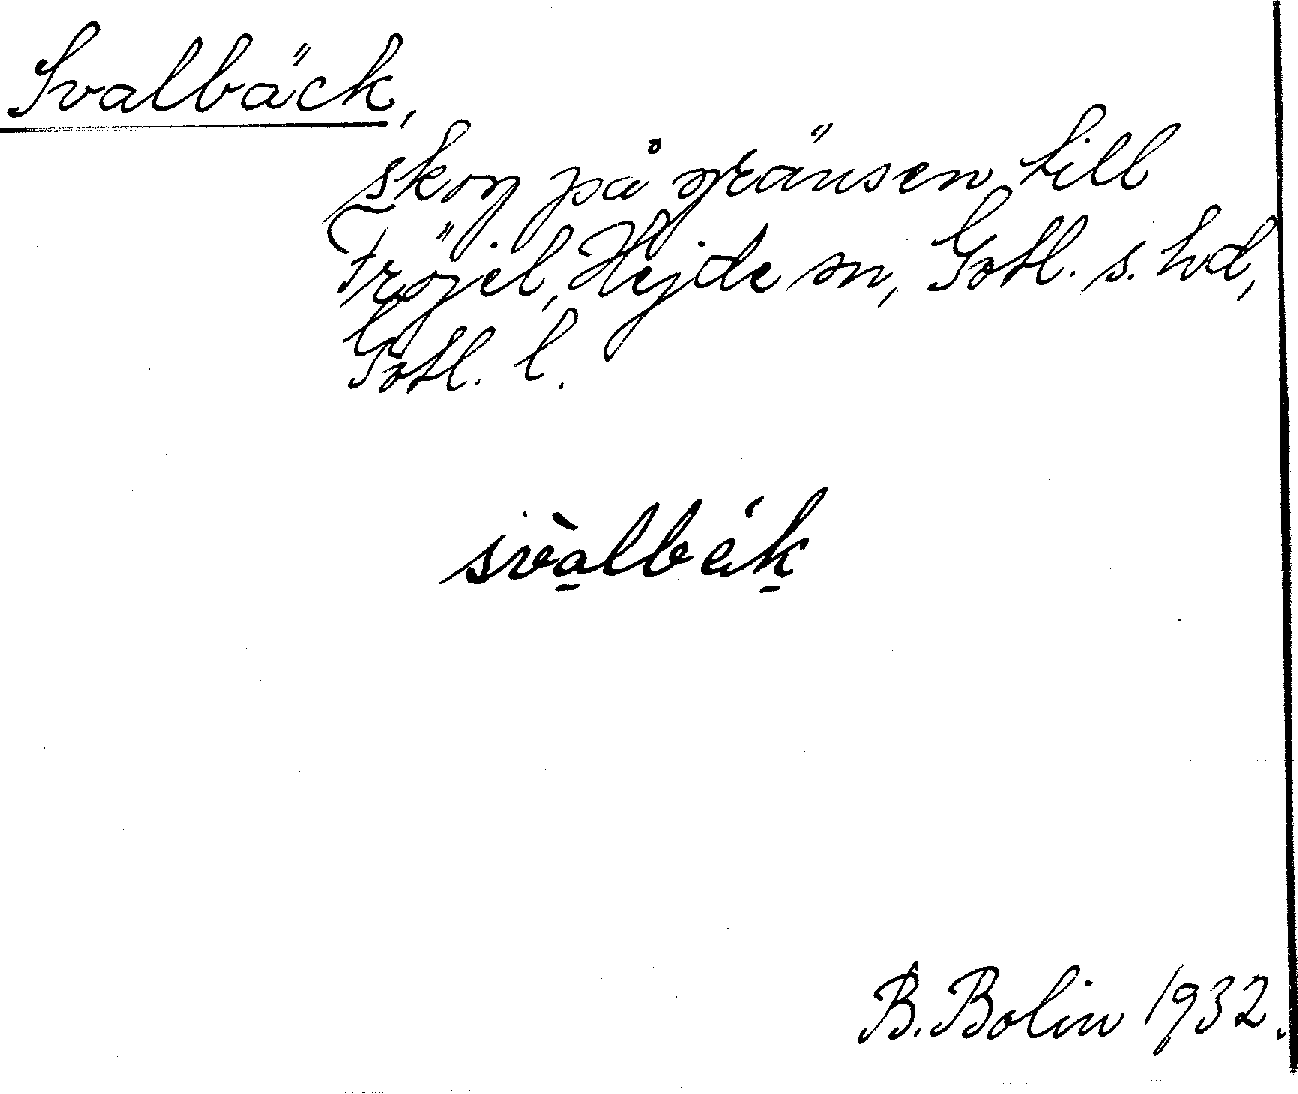 Svalbäck,
skog på gränsen till
Fröjel, Hejde sn, Gotl. s. hd,
Gotl. l.
svàlbák
B. Bolin 1932.